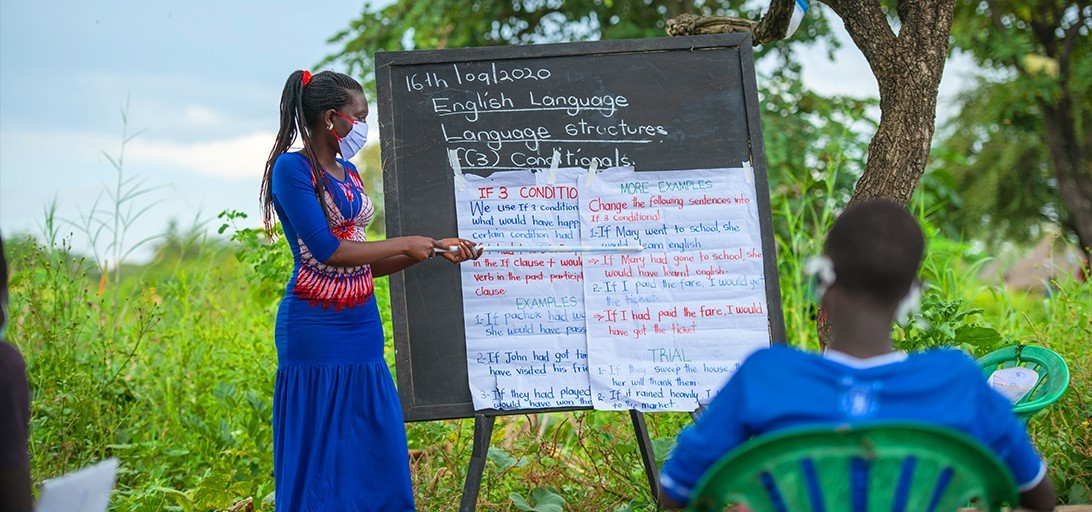 16th/09/2020
English Language
Language structures
If(3) Conditionals.
IF 3 CONDITIO
We use If 3 condition
what would have happ
certain condition had
in the If clause + would
verb in the past particip
clause.
EXAMPLES
1-If pachok had
she would have pass
2-If John had got tim
have visited his frie
3-If they had played
would have won the
MORE EXAMPLES
Change the following sentences into
If 3 conditional
1-If Mary went to school, she
would learn english
⇒If Mary had gone to school, she
would have learnt english.
2-If I paid the fare, I would get
the ticket.
⇒If I had paid the fare, I would
have got the ticket
TRIAL
1-If they sweep the house,
her will thank them.
2-If it rained heavily,
to the market